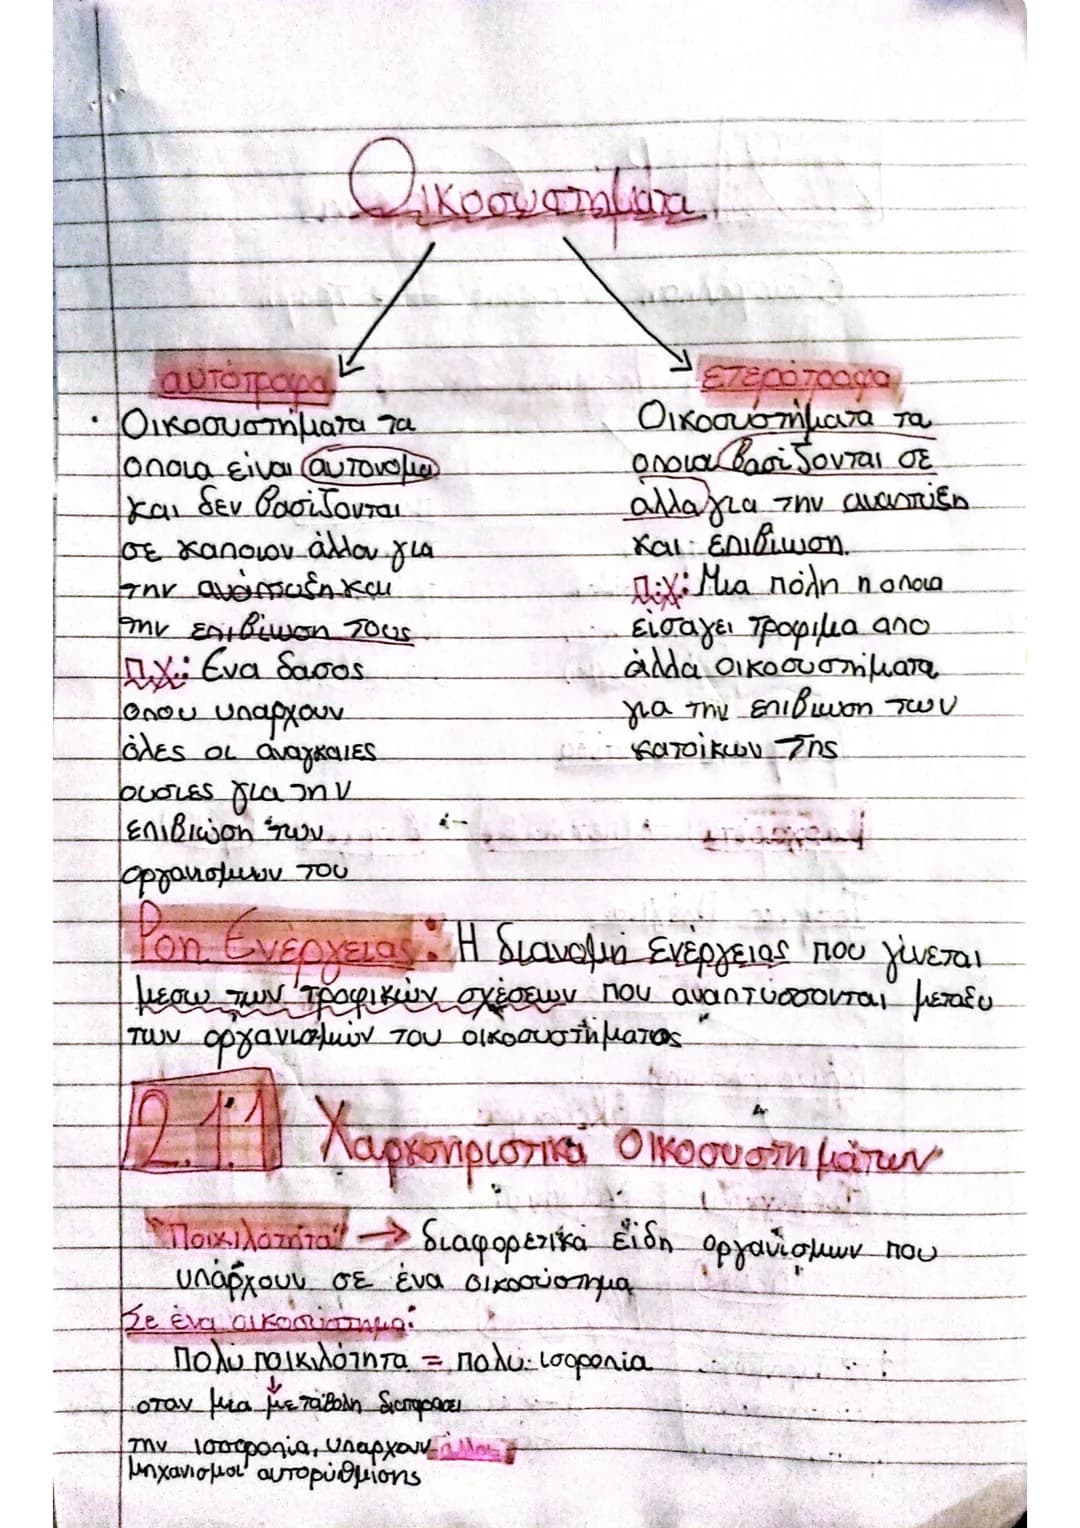 Οικοσυστήματα
αυτότροφα
• Οικοσυστήματα τα
οποια είναι αυτονομα
και δεν βασίζονται
σε καποιον άλλον για
την ανάπτυξη και
την επιβίωση τους
Π.Χ.: Ένα δασος
οπου υπαρχουν
όλες οι αναγκαιες
ουσιες για την
επιβιώση των
οργανισμων του
ετερότροφα
Οικοσυστήματα τα
οποια βασίζονται σε
άλλα για την αναπτύξη
και επιβίωση.
Π.Χ: Μια πόλη η οποια
είσαγει τροφιμα απο
άλλα οικοσυστήματα
για την επιβιωση των
κατοίκων της
Ροη Ενέργειας: Η διανομή ενέργειας που γίνεται
μεσω των τροφικών σχέσεων που αναπτύσσονται μεταξυ
των οργανισμών του οικοσυστήματος
2.1.1 Χαρκτηριστικά Οικοσυστημάτων
"Ποικιλοτητα" → διαφορετικά είδη οργανισμων που
υπάρχουν σε ένα οικοσύστημα
Σε ένα οικοσύστημα:
Πολυ ποικιλότητα = πολυ ισοροπία
οταν μια μεταβολη διαταρασει
την ισσοροπία, υπαρχουν
μηχανισμοι αυτορύθμισης